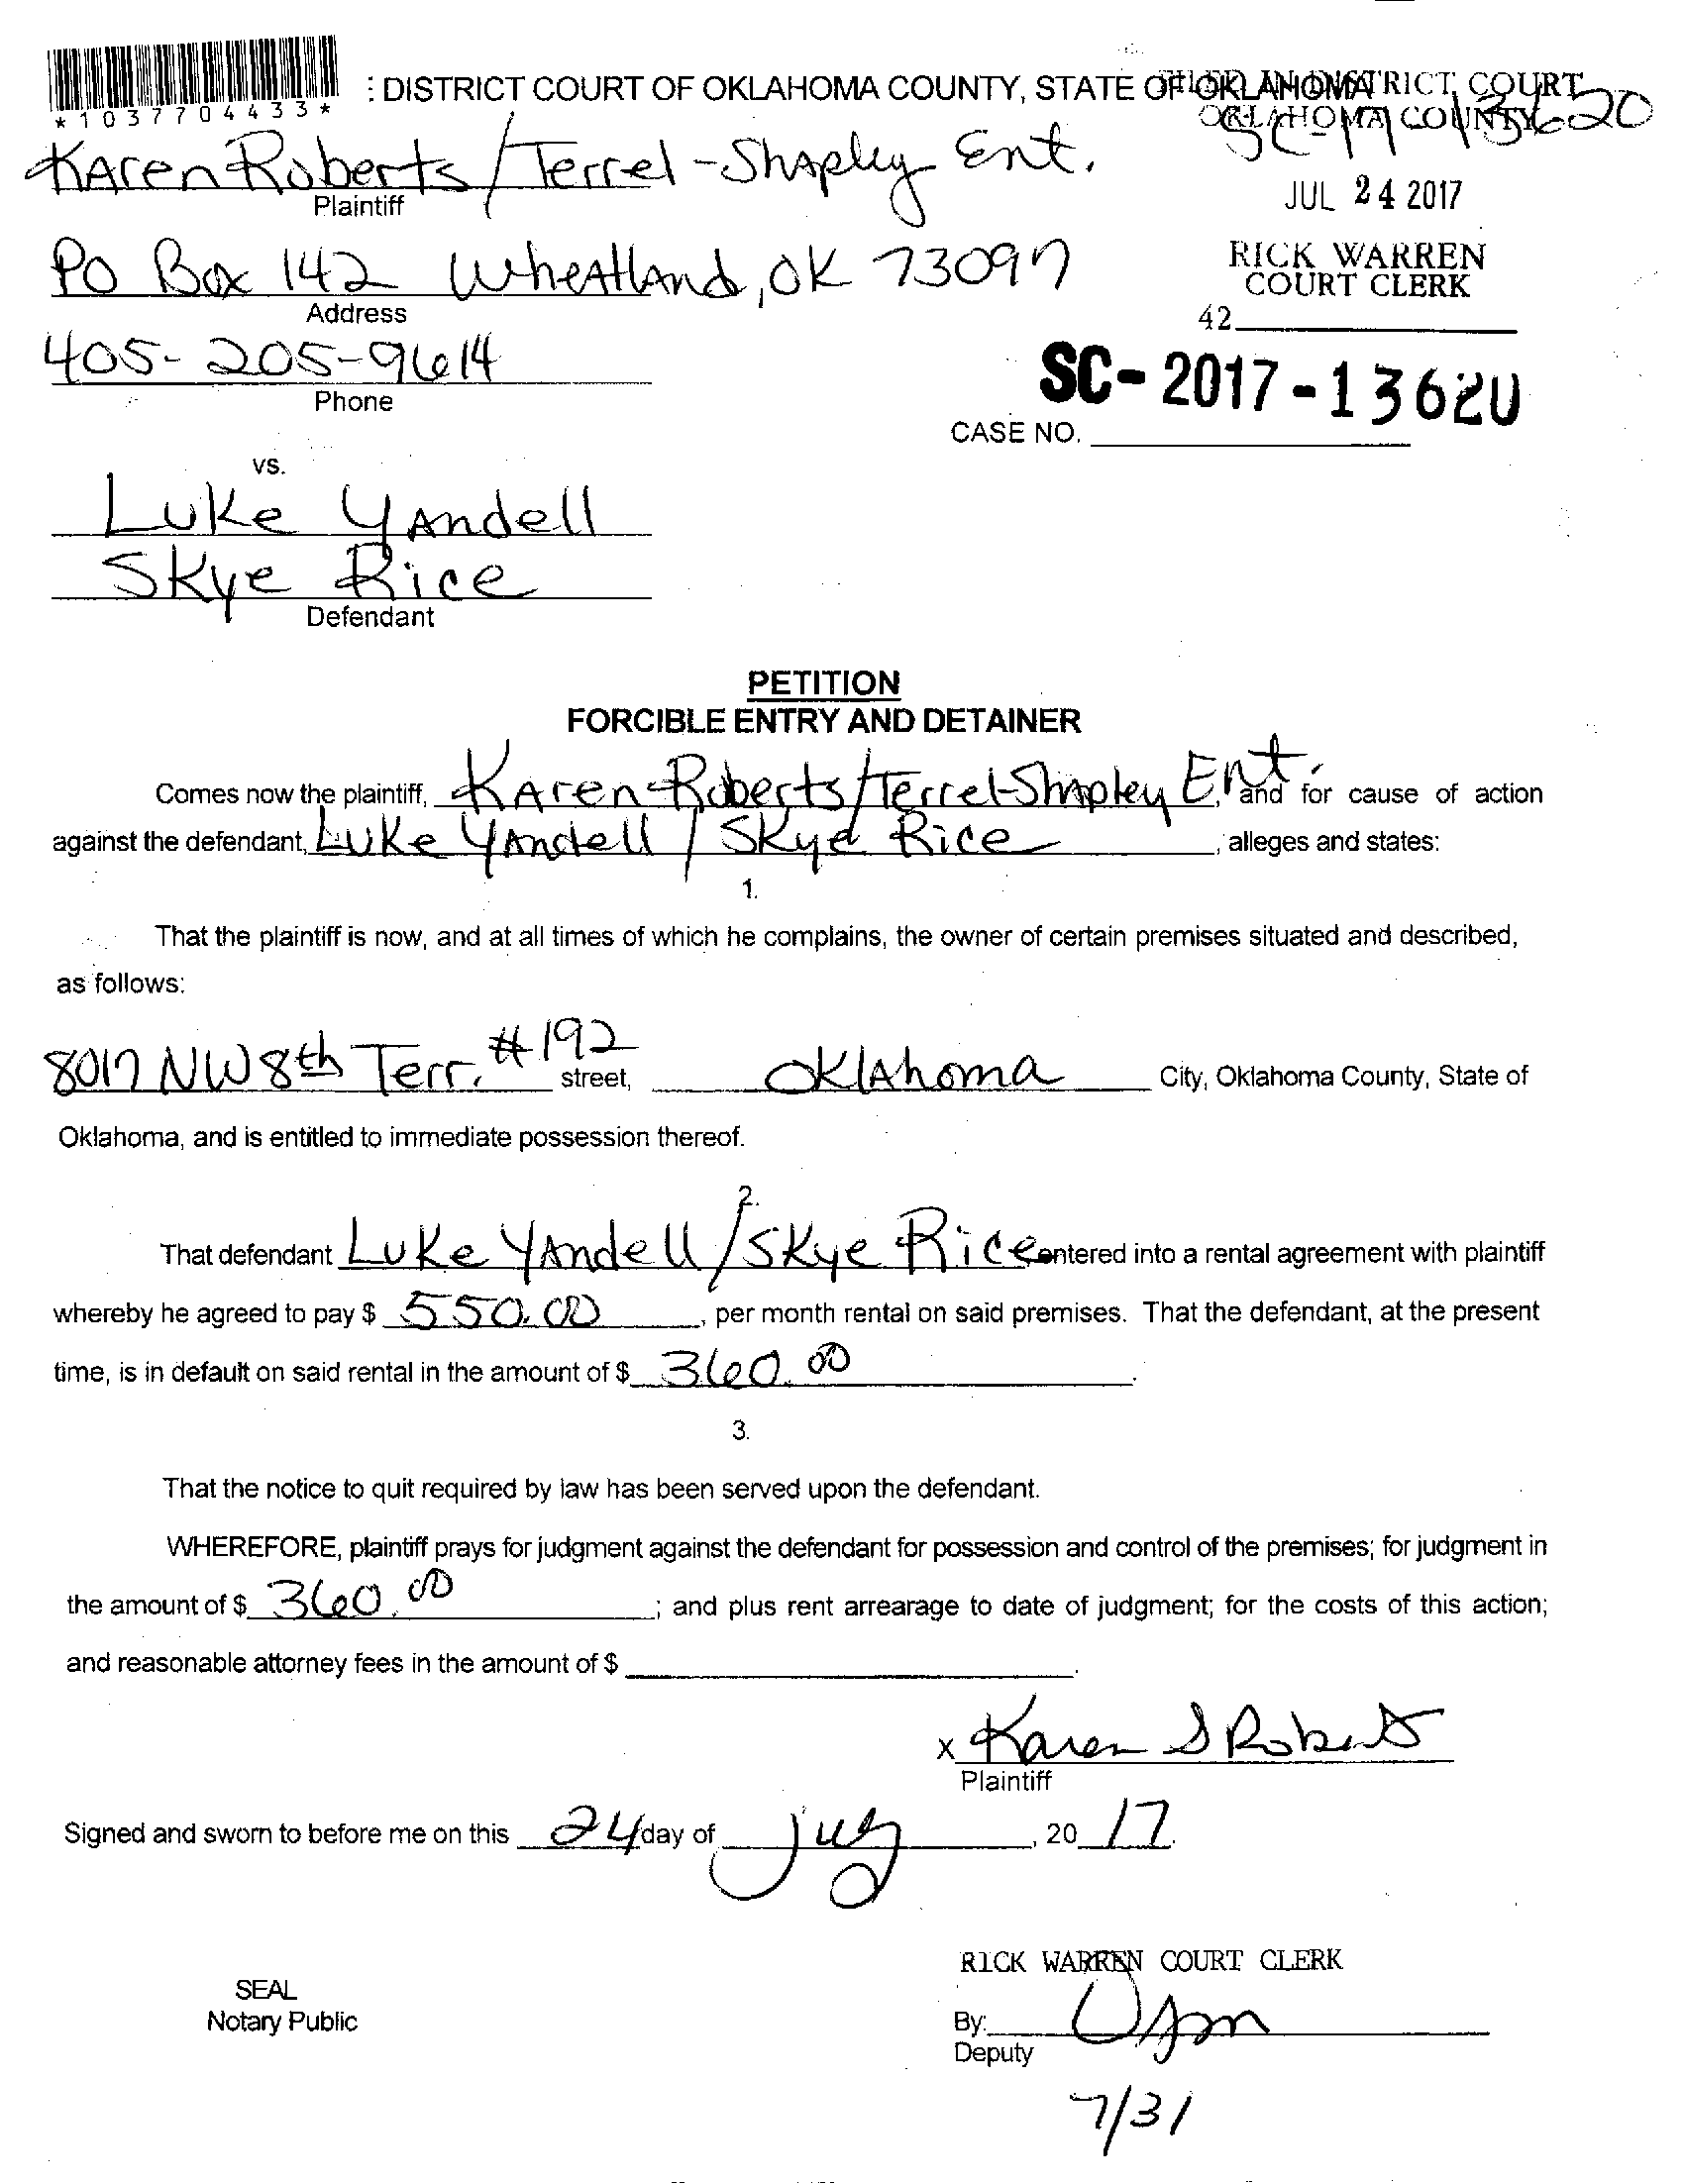 : DISTRICT COURT OF OKLAHOMA COUNTY, STATE OF OKLAHOMA
FILED IN DISTRICT COURT
OKLAHOMA COUNTY
*1037704433*
SC-17-13620
Karen Roberts / Terrel-Shapley Ent.
Plaintiff
JUL 24 2017
PO Box 142 Wheatland, OK 73097
Address
RICK WARREN
COURT CLERK
42
405-205-9614
Phone
SC-2017-13620
CASE NO.
vs.
Luke Yandell
Skye Rice
Defendant
PETITION
FORCIBLE ENTRY AND DETAINER
Comes now the plaintiff, Karen Roberts/Terrel-Shapley Ent., and for cause of action
against the defendant, Luke Yandell / Skye Rice, alleges and states:
1.
That the plaintiff is now, and at all times of which he complains, the owner of certain premises situated and described,
as follows:
8017 NW 8th Terr. #192 street, Oklahoma City, Oklahoma County, State of
Oklahoma, and is entitled to immediate possession thereof.
2.
That defendant Luke Yandell/Skye Rice entered into a rental agreement with plaintiff
whereby he agreed to pay $ 550.00, per month rental on said premises. That the defendant, at the present
time, is in default on said rental in the amount of $ 360.00.
3.
That the notice to quit required by law has been served upon the defendant.
WHEREFORE, plaintiff prays for judgment against the defendant for possession and control of the premises; for judgment in
the amount of $ 360.00; and plus rent arrearage to date of judgment; for the costs of this action;
and reasonable attorney fees in the amount of $ .
x Karen S Roberts
Plaintiff
Signed and sworn to before me on this 24 day of July, 20 17.
RICK WARREN COURT CLERK
SEAL
Notary Public
By:
Deputy
7/31